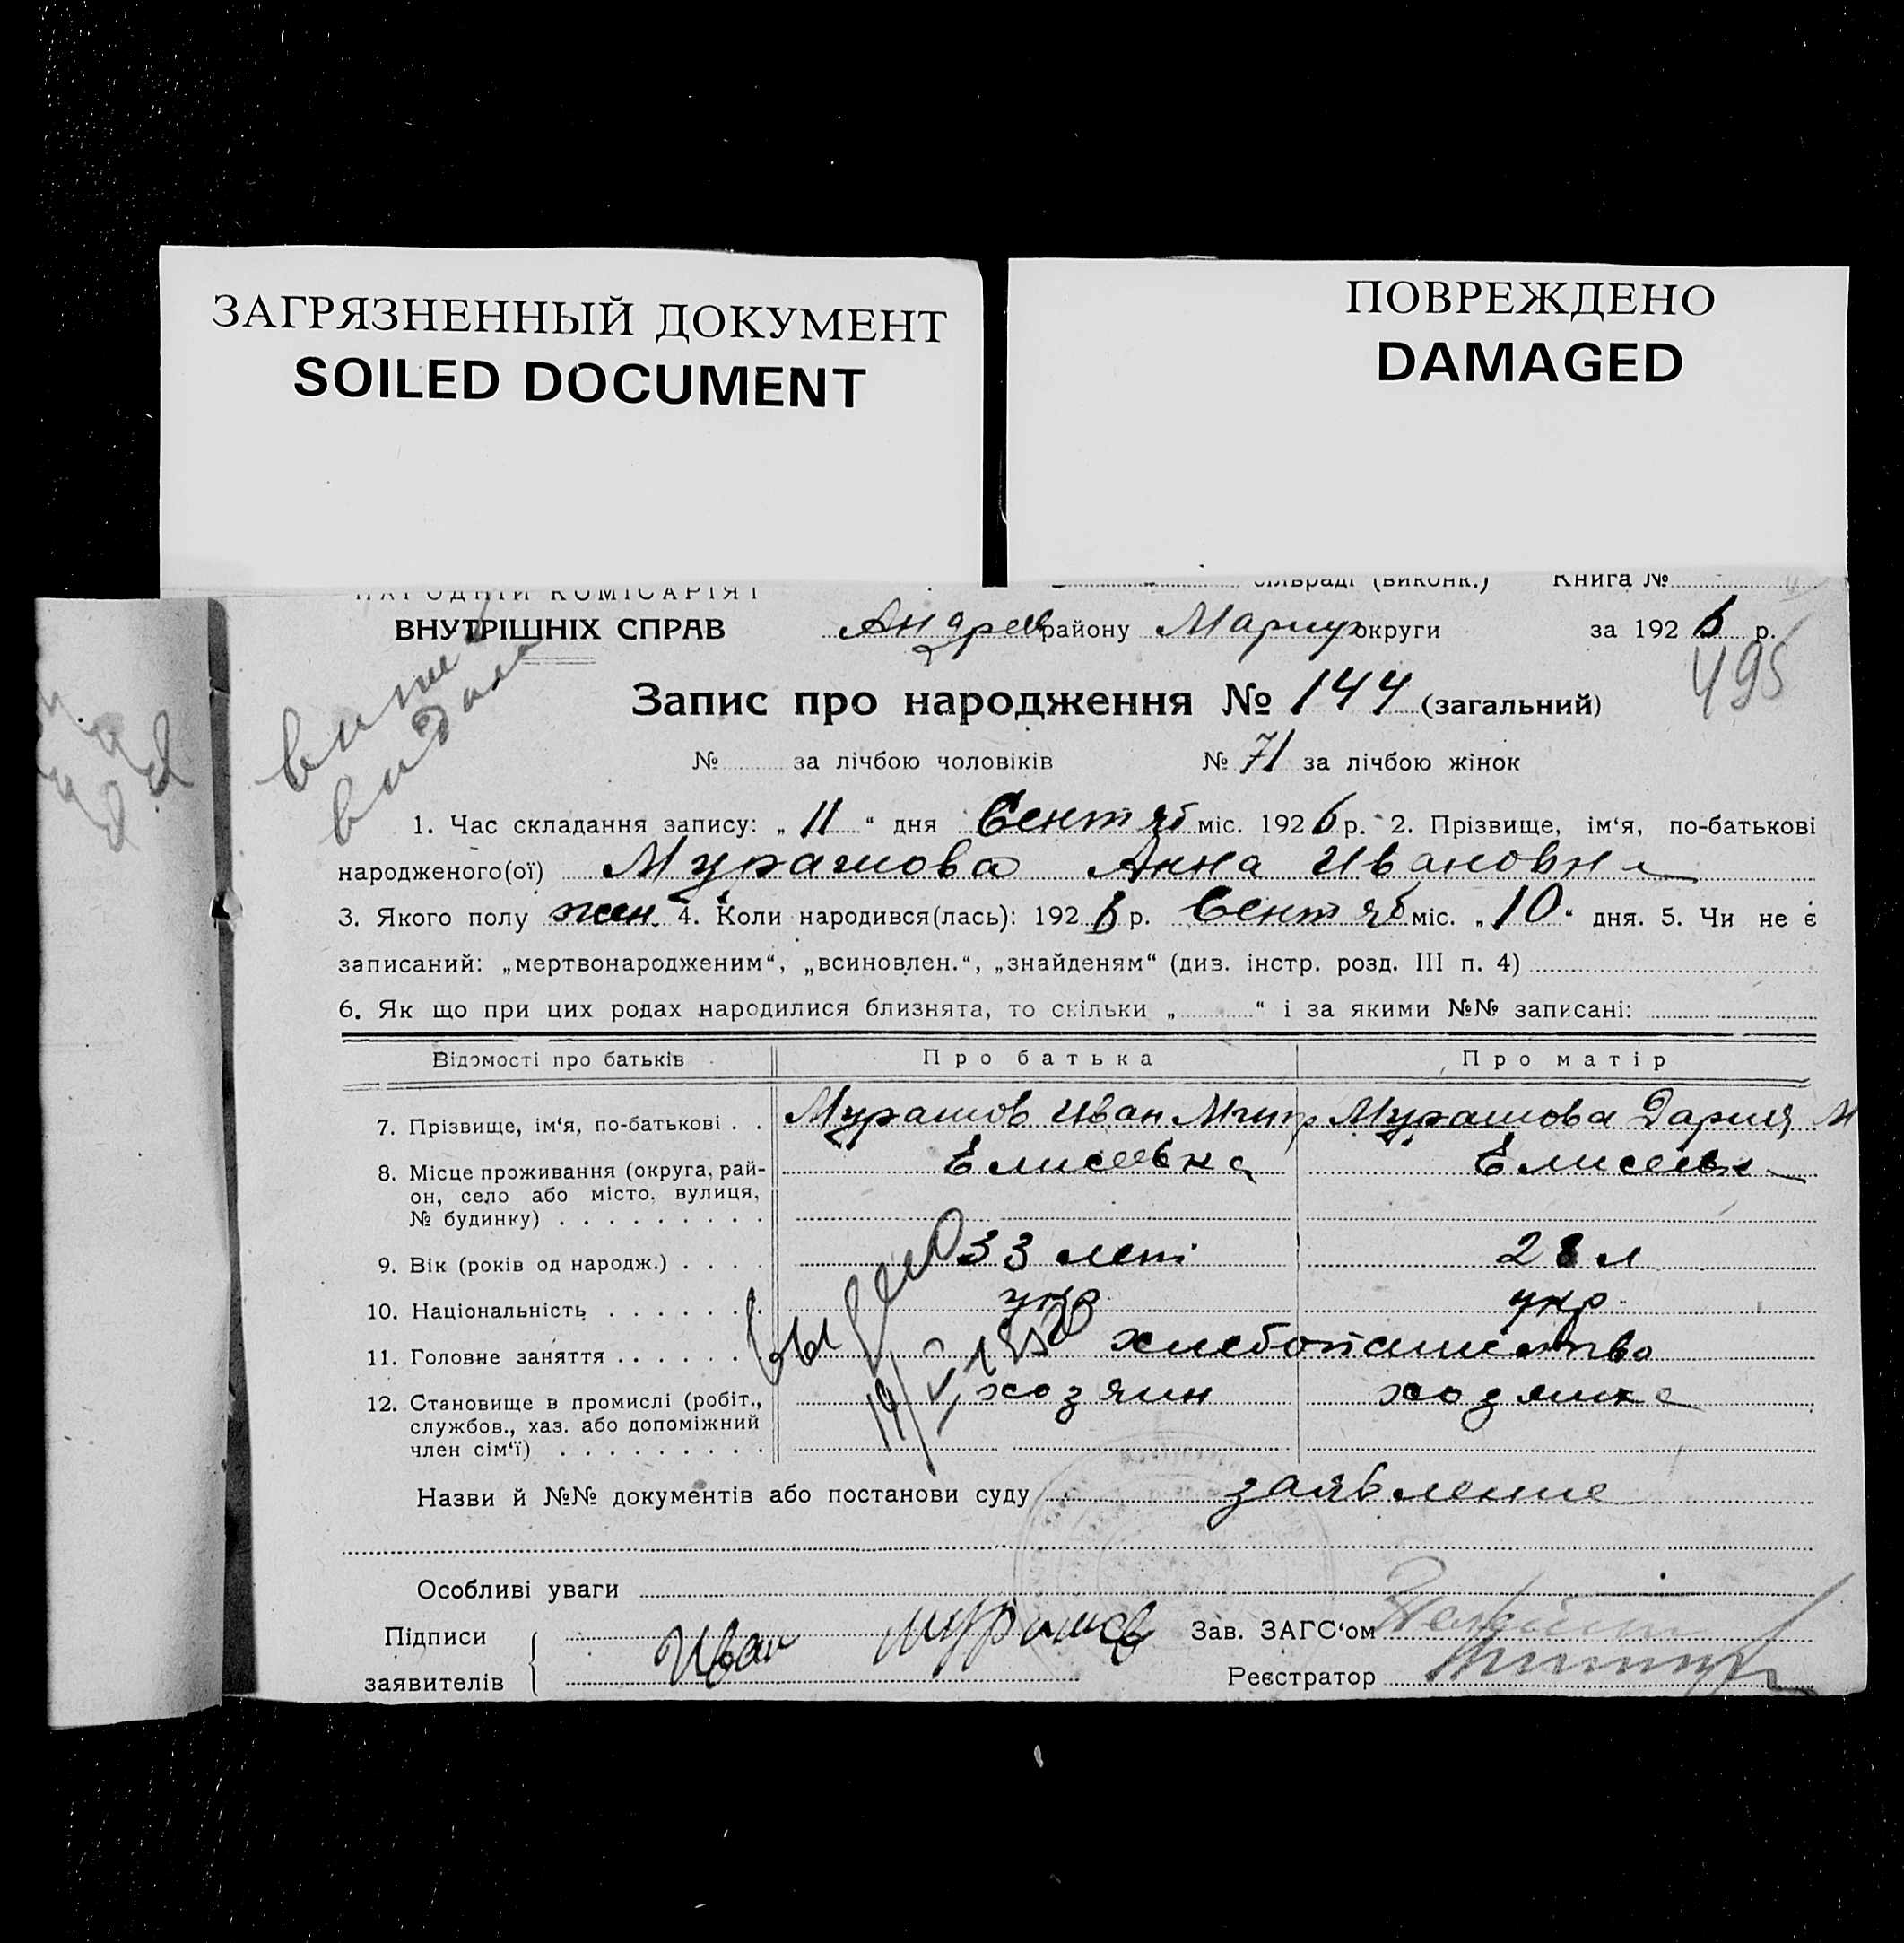 ЗАГРЯЗНЕННЫЙ ДОКУМЕНТ
SOILED DOCUMENT
ПОВРЕЖДЕНО
DAMAGED
НАРОДНІЙ КОМІСАРІЯТ
сільраді (виконк.) Книга №
ВНУТРІШНІХ СПРАВ
Андреев району Мариуп округи за 1926 р.
495
Запис про народження № 144 (загальний)
№ за лічбою чоловіків № 71 за лічбою жінок
1. Час складання запису: „11“ дня Сентяб міс. 1926 р. 2. Прізвище, ім‘я, по-батькові
народженого(ої) Мурашова Анна Ивановна
3. Якого полу жен. 4. Коли народився(лась): 1926 р. Сентяб міс. „10“ дня. 5. Чи не є
записаний: „мертвонародженим“, „всиновлен.“, „знайденям“ (див. інстр. розд. III п. 4)
6. Як що при цих родах народилися близнята, то скільки „ “ і за якими №№ записані:
Відомості про батьків Про батька Про матір
7. Прізвище, ім‘я, по-батькові . . Мурашов Иван Митр Мурашова Дария М
8. Місце проживання (округа, рай- Елисеевка Елисеевка
он, село або місто, вулиця,
№ будинку) . . . . . . . . .
9. Вік (років од народж.) . . . . 33 лет 28 л
10. Національність . . . . . . . укр укр.
11. Головне заняття . . . . . . . хлебопашество
12. Становище в промислі (робіт., хозяин хозяйка
службов., хаз. або допоміжний
член сім‘ї) . . . . . . . . .
Назви й №№ документів або постанови суду заявление
Особливі уваги
Підписи Иван Мурашов Зав. ЗАГС‘ом
заявителів Реєстратор